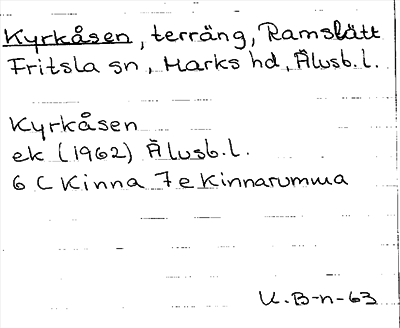 Kyrkåsen, terräng, Ramslätt
Fritsla sn, Marks hd, Älvsb. l.
Kyrkåsen
ek (1962) Älvsb. l.
6 C Kinna 7 e Kinnarumma
U. B-n-63